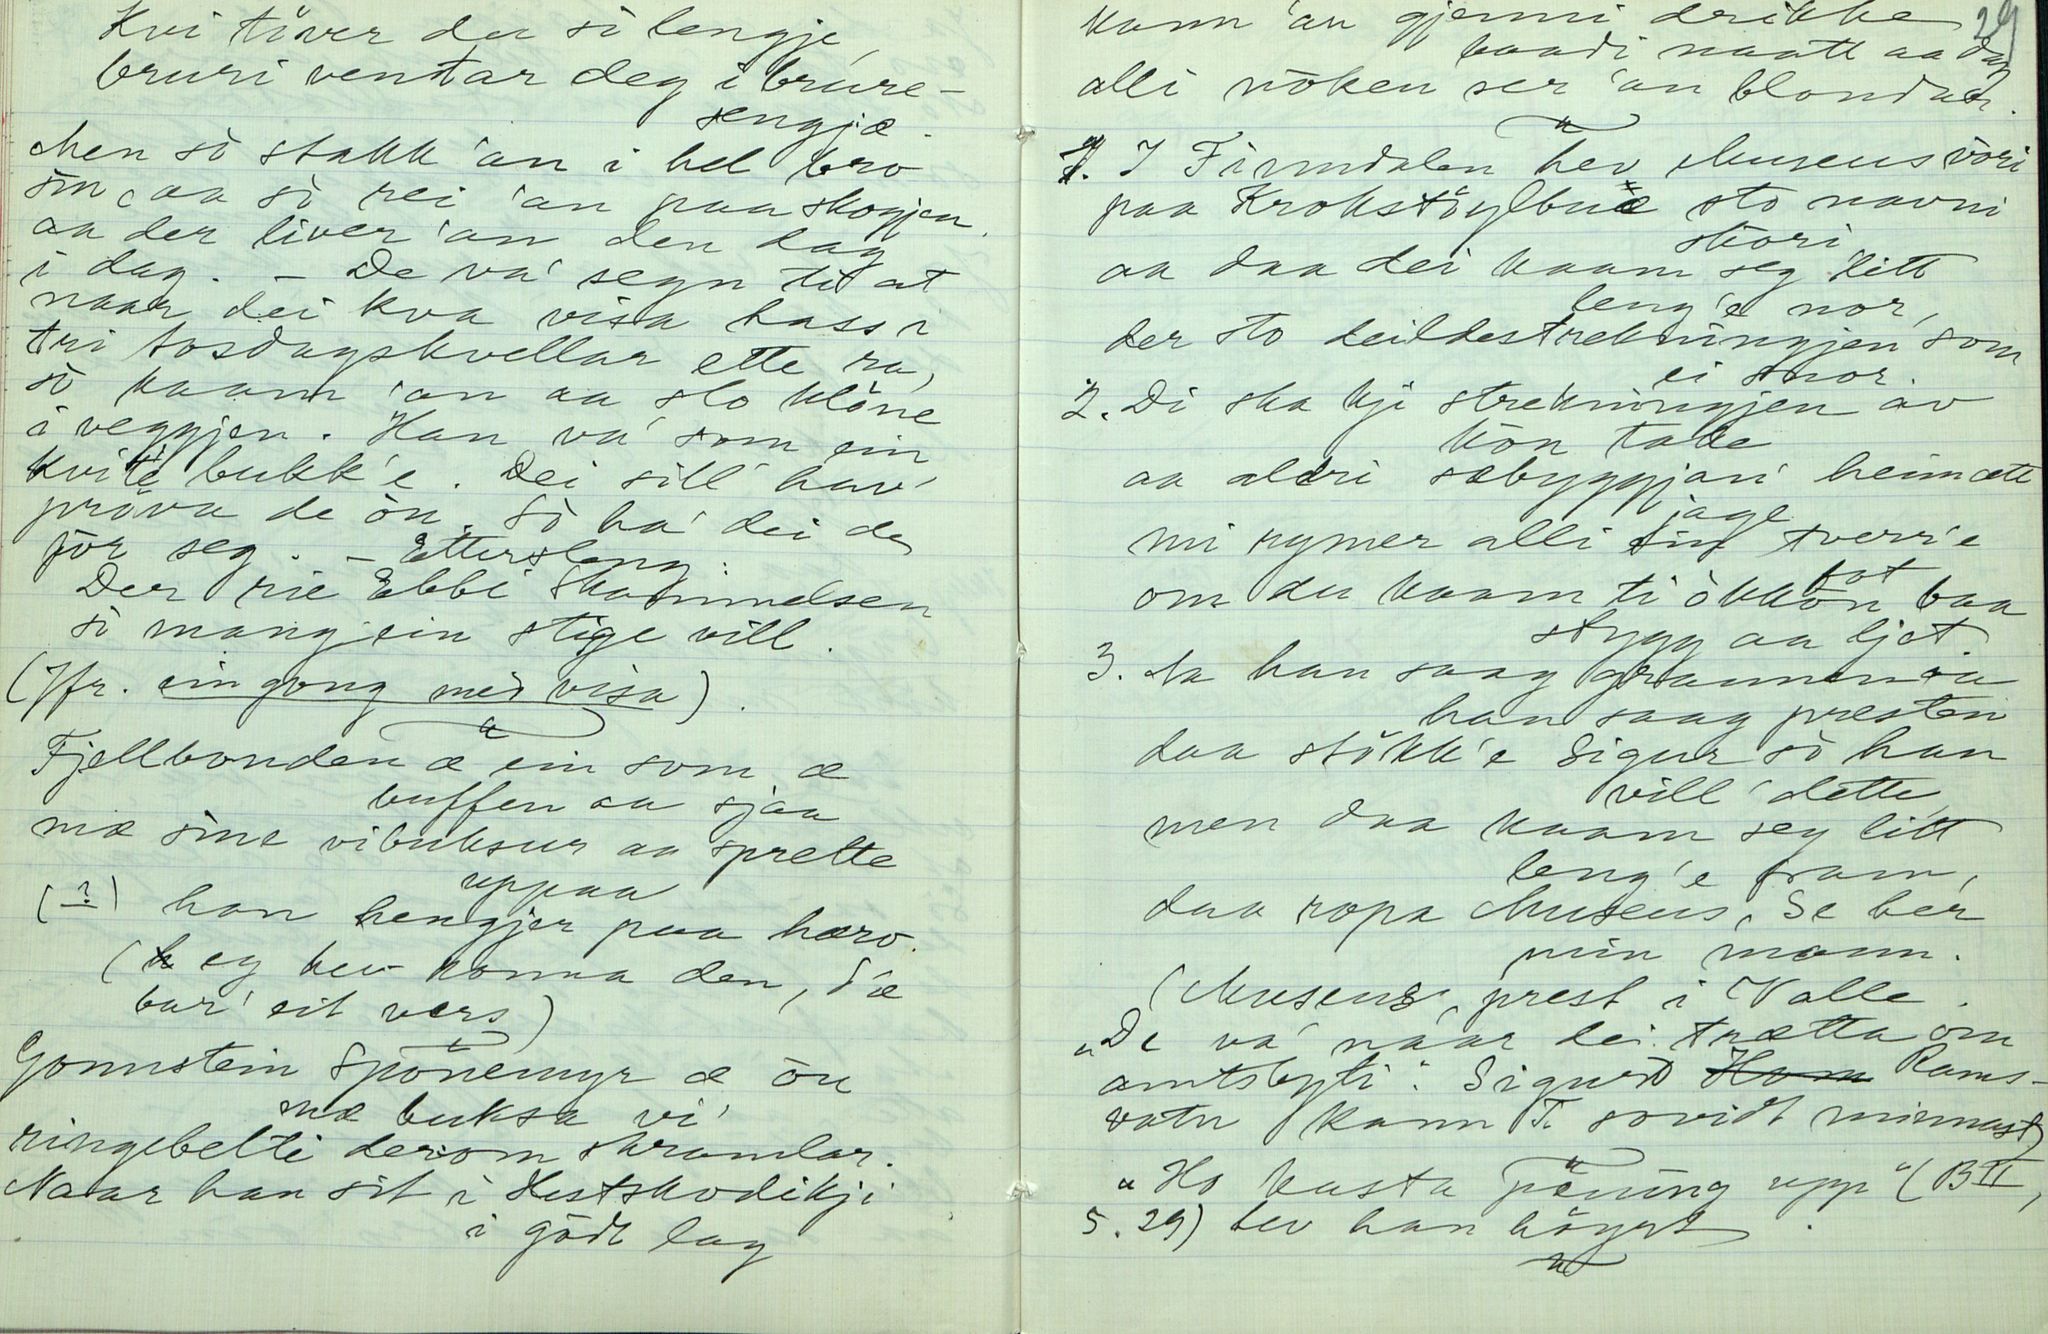 Kvi tøver du so lengje,
bruri ventar deg i brure-
sengjæ.
Men so stakk 'an i hel bro
sin, aa so rei 'an paa skogjen,
aa der liver 'an den dag
i dag. – De va' segn til at
naar dei kva visa hass i
tri tosdagskvellar ette ra,
so kaam 'an aa slo klone
i veggjen. Han va' som ein
kvite bukk'e. Dei sill' hav'
prøva de ön. So ha' dei de
för seg. – Ettersleng:
Der rie Ebbi Skammelsen
so mang ein stige vill.
(Jfr. eingong med visa).
Fjellbonden æ ein som æ
buffen aa sjaa
mæ sine vibuksur aa sprette
uppaa
(?) han hengjer paa hæro.
(eg hev konna den, d'æ
bar' eit vers)
Gonnstein Spönemyr æ ön
mæ buksa vi'
ringebelti derom skramlar.
Naar han sit i Hestskodikji
i godt lag
29
kann 'an gjenni drikke
baadi naatt aa dag
alli nöken ser 'an blondar.
1. I Finndalen hev Museus vöri
paa Krokstöylbue sto navni
stori
aa daa dei kaam seg litt
leng'e nor,
der sto deildestrekningjen som
ei snor.
2. Di ska kji strekningjen av
kön take
aa aldri sæbyggjari heimatte
jage
mi rymer alli sin tverr'e
fot
om du kaam ti ökkön baa
stygg aa ljot.
3. Aa han saag grannen aa
han saag presten
daa stökk'e Sigur so han
vill' dette,
men daa kaam seg litt
leng'e fram,
daa ropa Museus, Se her
min mann.
(Museus, prest i Valle.
"De va' naar dei trætta om
amtsbyti". Sigurd Rams-
vatn kann T. sovidt minnast)
"Ho kasta pening upp" (B II,
s. 29) hev han högrt.